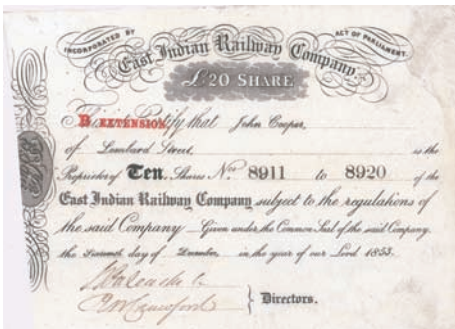 INCORPORATED BY ACT OF PARLIAMENT.
East Indian Railway Company
£20 SHARE
B. EXTENSION
This is to Certify that John Cooper,
of Lombard Street, is the
Proprietor of Ten Shares Nos 8911 to 8920 of the
East Indian Railway Company subject to the regulations of
the said Company Given under the Common Seal of the said Company
the Sixteenth day of December, in the year of our Lord 1853.
Crawford
Directors.